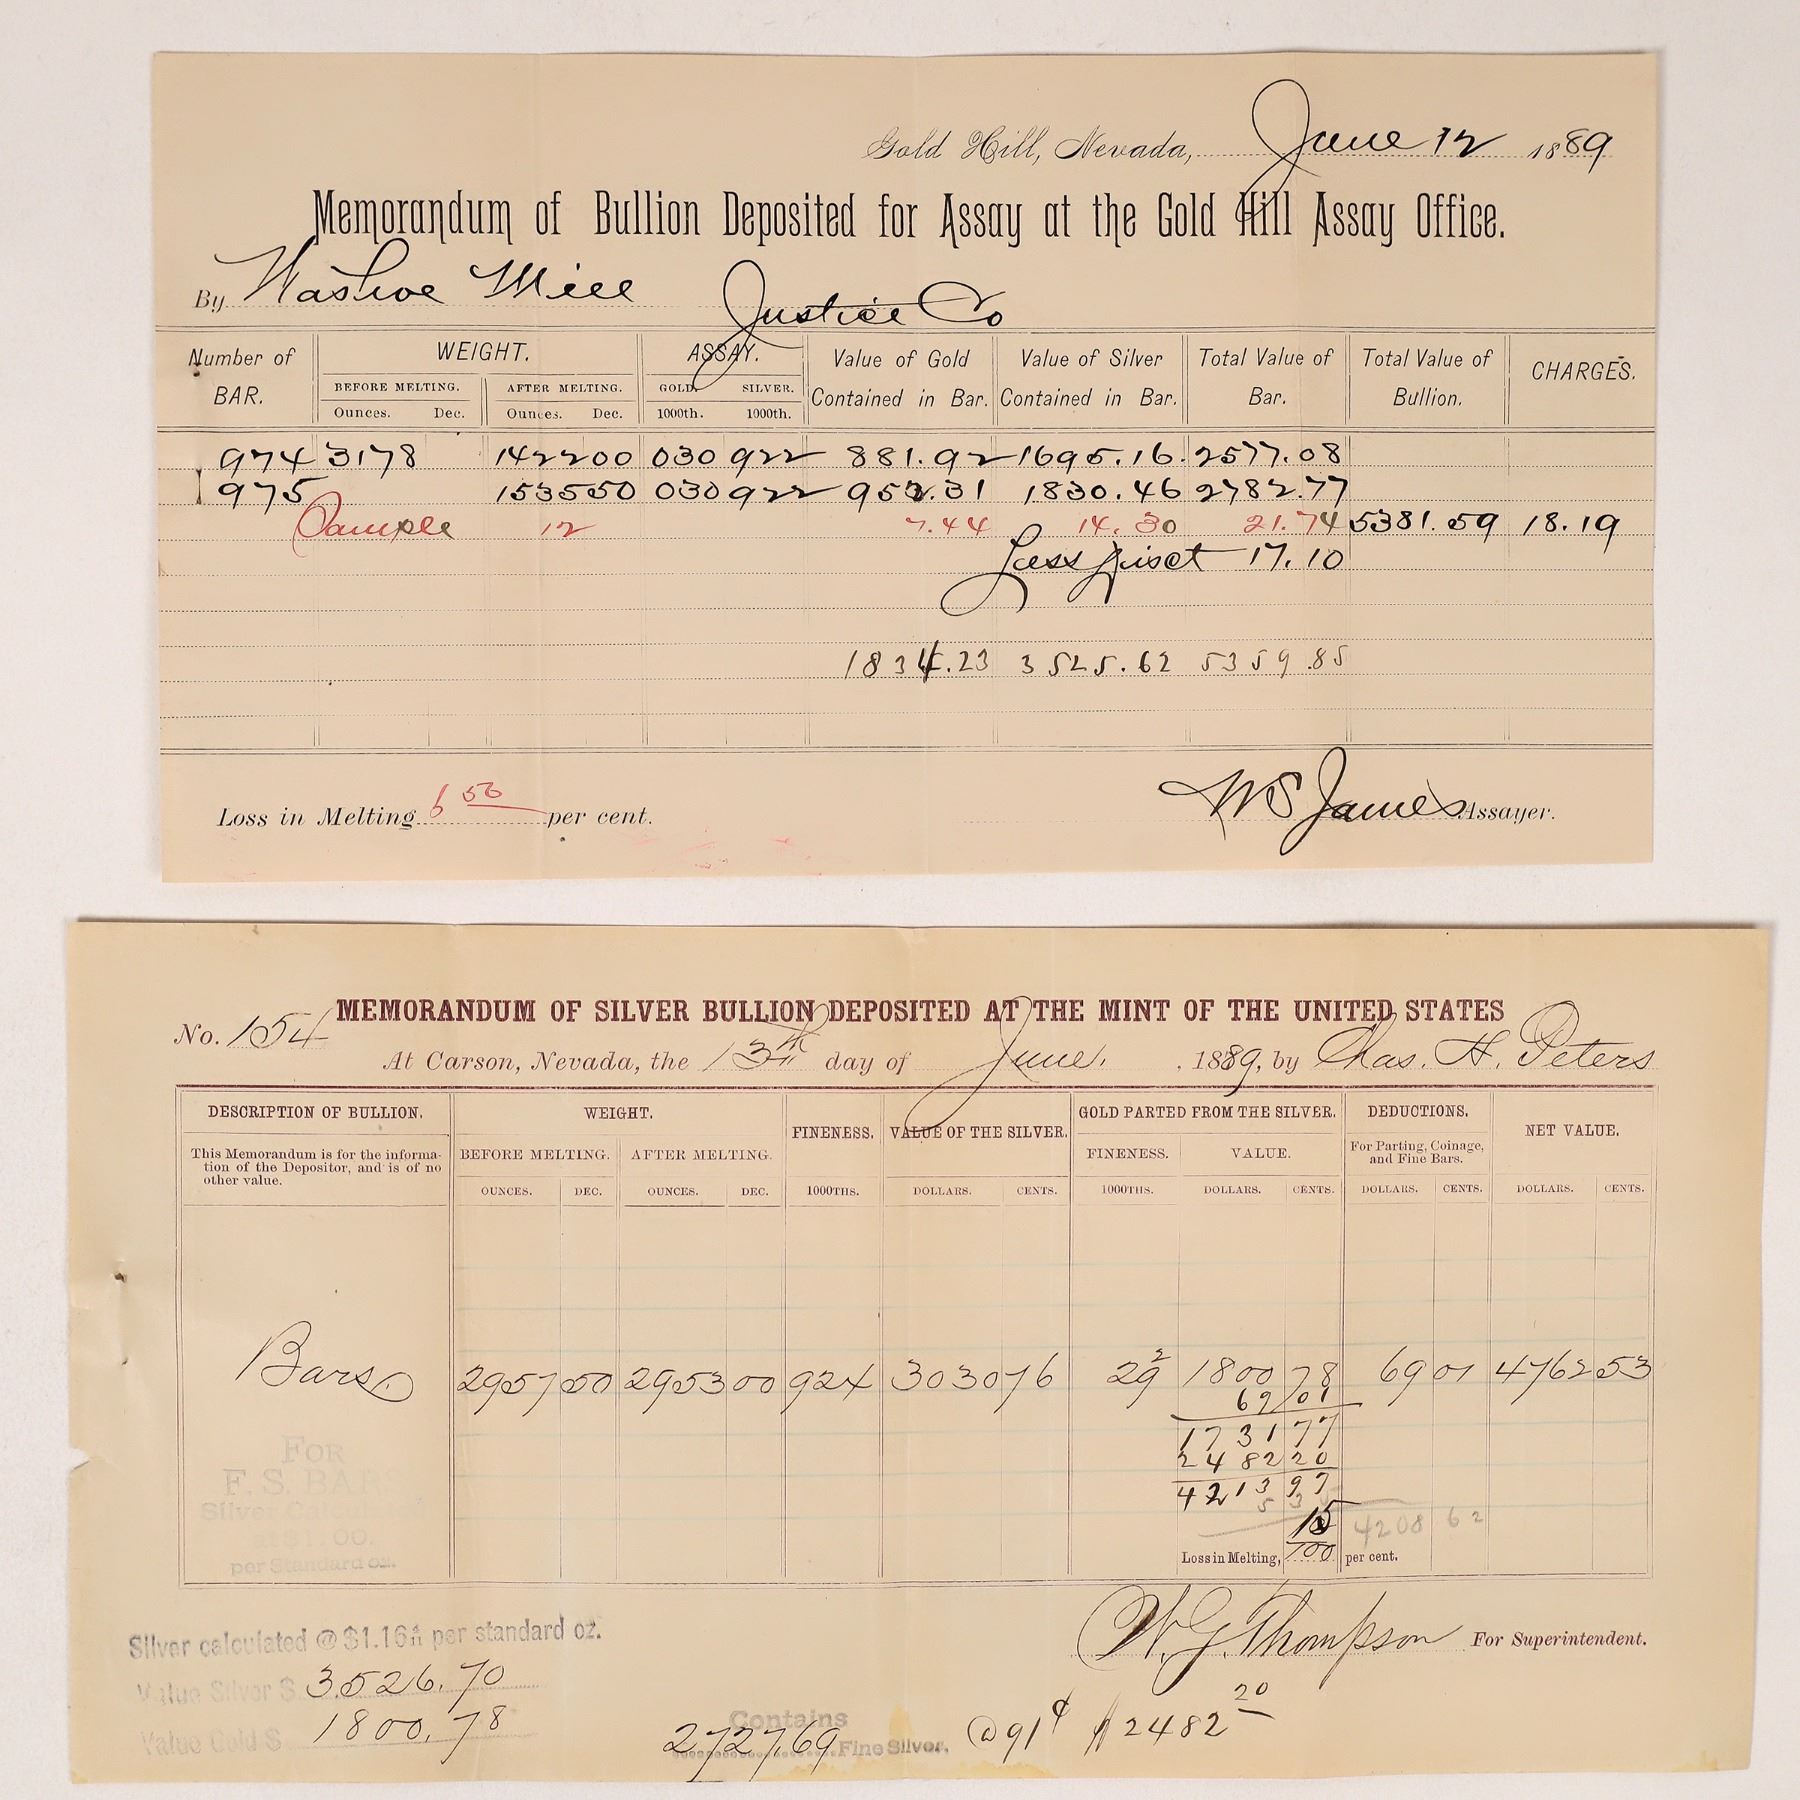 Gold Hill, Nevada, June 12 1889
Memorandum of Bullion Deposited for Assay at the Gold Hill Assay Office.
By Washoe Mill Justice Co
Number of BAR. WEIGHT. ASSAY. Value of Gold Contained in Bar. Value of Silver Contained in Bar. Total Value of Bar. Total Value of Bullion. CHARGES.
BEFORE MELTING. AFTER MELTING. GOLD. SILVER.
Ounces. Dec. Ounces. Dec. 1000th. 1000th.
974 3178 1422 00 030 922 881.92 1695.16 2577.08
975 1535 50 030 922 952.31 1830.46 2782.77
Sample 12 7.44 14.30 21.74 5381.59 18.19
Less 17.10
1834.23 3525.62 5359.85
Loss in Melting 6 50 per cent.
W S James Assayer.
MEMORANDUM OF SILVER BULLION DEPOSITED AT THE MINT OF THE UNITED STATES
No. 154
At Carson, Nevada, the 13th day of June. , 1889, by Chas. H. Peters
DESCRIPTION OF BULLION. WEIGHT. FINENESS. VALUE OF THE SILVER. GOLD PARTED FROM THE SILVER. DEDUCTIONS. NET VALUE.
This Memorandum is for the informa-
tion of the Depositor, and is of no
other value.
BEFORE MELTING. AFTER MELTING. FINENESS. VALUE. For Parting, Coinage, and Fine Bars.
OUNCES. DEC. OUNCES. DEC. 1000THS. DOLLARS. CENTS. 1000THS. DOLLARS. CENTS. DOLLARS. CENTS. DOLLARS. CENTS.
Bars 2957 50 2953 00 924 3030 76 29 2 1800 78 69 01 4762 53
69 01
1731 77
2482 20
4213 97
5 35
4208 62
Loss in Melting, 15/100 per cent.
FOR
F. S. BARS
Silver Calculated
at $1.00.
per Standard oz.
W. G. Thompson For Superintendent.
Silver calculated @ $1.16 4/11 per standard oz.
Value Silver $ 3526.70
Value Gold $ 1800.78
Contains
2727.69 Fine Silver. @ 91¢ $2482 20